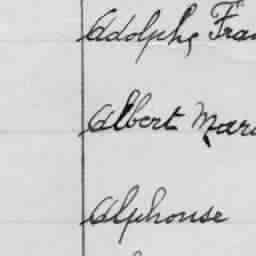 Adolphe Fra
Albert Mar
Alphonse